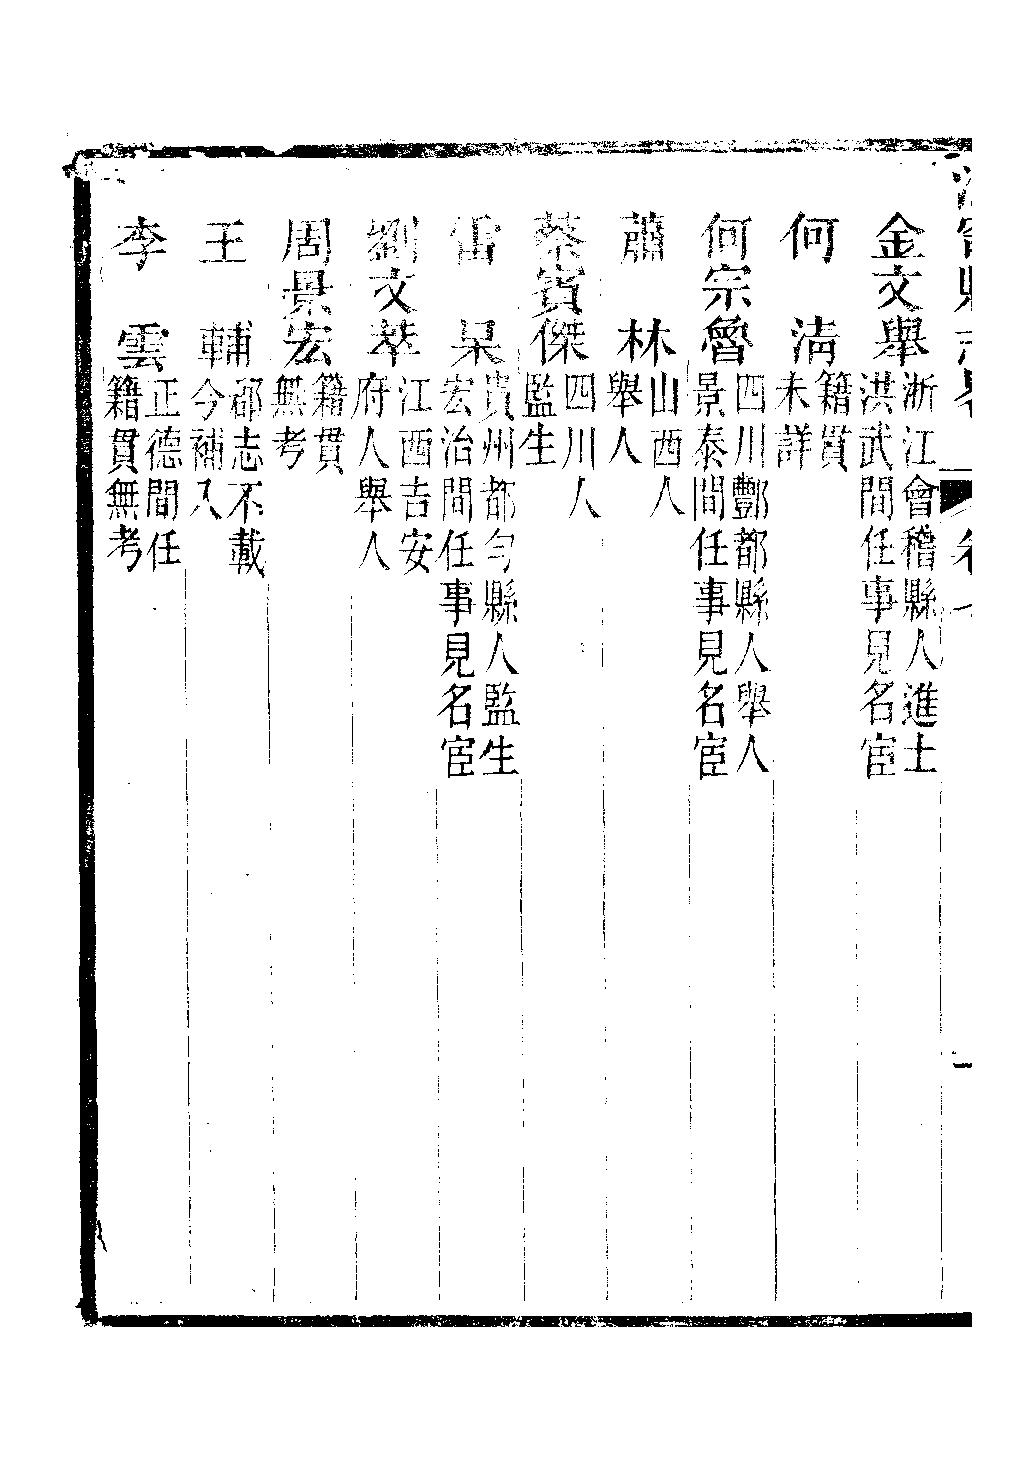 金文舉 浙江會稽縣人進士洪武間任事見名宦
何清 籍貫未詳
何宗魯 四川酆都縣人舉人景泰間任事見名宦
蕭林 山西人舉人
蔡賓傑 四川人監生
雷杲 貴州都勻縣人監生宏治間任事見名宦
劉文萃 江西吉安府人舉人
周景宏 籍貫無考
王輔 郡志不載今補入
李雲 正德間任籍貫無考